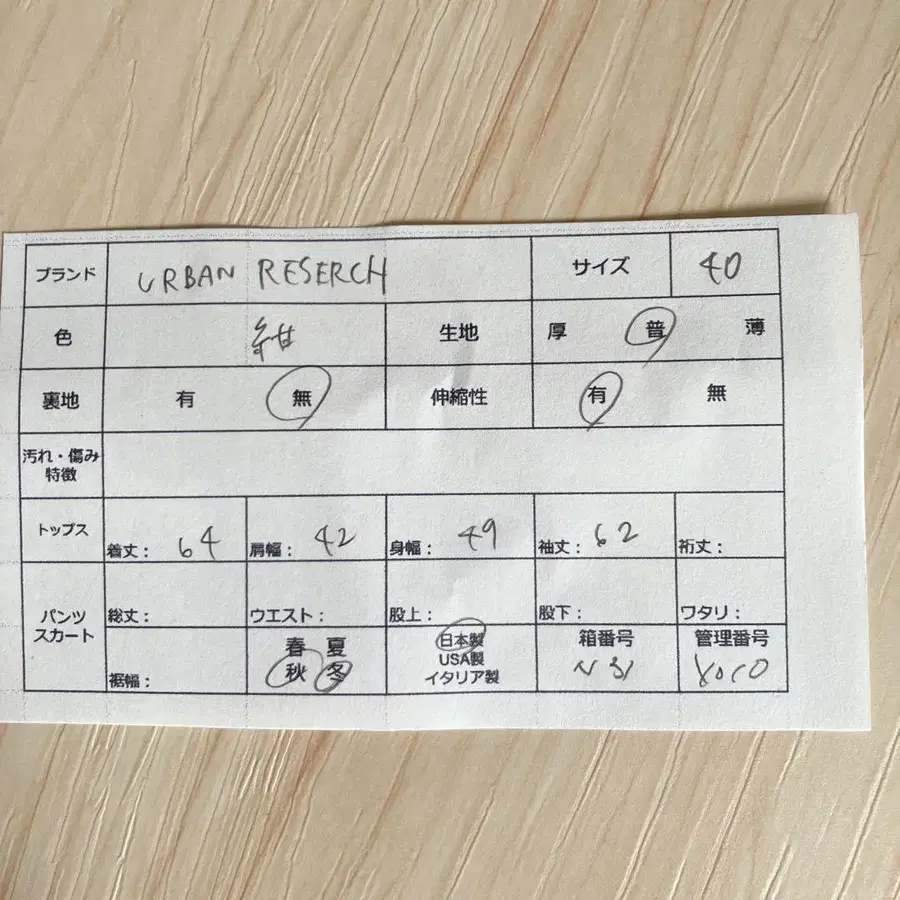 ブランド URBAN RESERCH サイズ 40
色 紺 生地 厚 普 薄
裏地 有 無 伸縮性 有 無
汚れ・傷み
特徴
トップス 着丈： 64 肩幅： 42 身幅： 49 袖丈： 62 裄丈：
パンツ
スカート
総丈： ウエスト： 股上： 股下： ワタリ：
裾幅：
春 夏
秋 冬
日本製
USA製
イタリア製
箱番号
管理番号